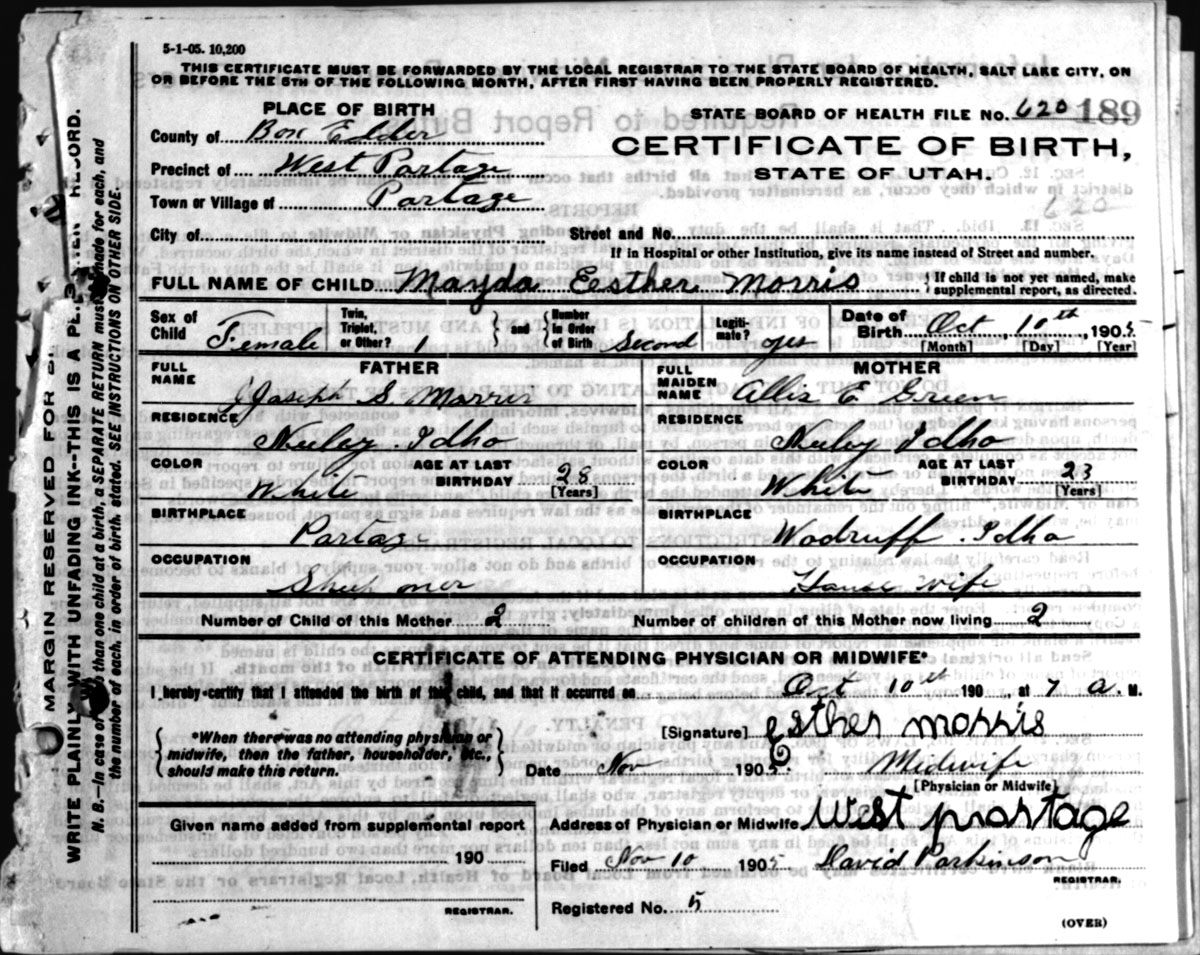 5-1-05. 10,200
THIS CERTIFICATE MUST BE FORWARDED BY THE LOCAL REGISTRAR TO THE STATE BOARD OF HEALTH, SALT LAKE CITY, ON
OR BEFORE THE 5TH OF THE FOLLOWING MONTH, AFTER FIRST HAVING BEEN PROPERLY REGISTERED.
PLACE OF BIRTH
STATE BOARD OF HEALTH FILE No. 620 189
County of Box Elder
CERTIFICATE OF BIRTH,
Precinct of West Partage
STATE OF UTAH.
Town or Village of Partage
620
City of
Street and No.
If in Hospital or other Institution, give its name instead of Street and number.
FULL NAME OF CHILD Mayda Eesther Morris {If child is not yet named, make supplemental report, as directed.
Sex of Child Female Twin, Triplet, or Other? 1 and Number in Order of Birth Second Legitimate? yes Date of Birth Oct 10th 1905
[Month] [Day] [Year]
FATHER
MOTHER
FULL NAME Joseph S. Morris
FULL MAIDEN NAME Allis E Green
RESIDENCE
RESIDENCE
Neeley Idho
Neeley Idho
COLOR White AGE AT LAST BIRTHDAY 28 [Years]
COLOR White AGE AT LAST BIRTHDAY 23 [Years]
BIRTHPLACE
BIRTHPLACE
Partage
Wodruff Idho
OCCUPATION
OCCUPATION
Sheep mer
House wife
Number of Child of this Mother 2
Number of children of this Mother now living 2
CERTIFICATE OF ATTENDING PHYSICIAN OR MIDWIFE*
I hereby certify that I attended the birth of this child, and that it occurred on Oct 10th 1905 at 7 a. M.
*When there was no attending physician or
midwife, then the father, householder, etc.,
should make this return.
[Signature] Esther morris
Date Nov 1905 Midwife
[Physician or Midwife]
Given name added from supplemental report
Address of Physician or Midwife West prortage
190
Filed Nov 10 1905 David Parkinson
REGISTRAR.
REGISTRAR.
Registered No. 5
(OVER)
MARGIN RESERVED FOR
WRITE PLAINLY WITH UNFADING INK--THIS IS A RECORD.
N. B.--In case of more than one child at a birth, a SEPARATE RETURN must be made for each, and
the number of each, in order of birth, stated. SEE INSTRUCTIONS ON OTHER SIDE.